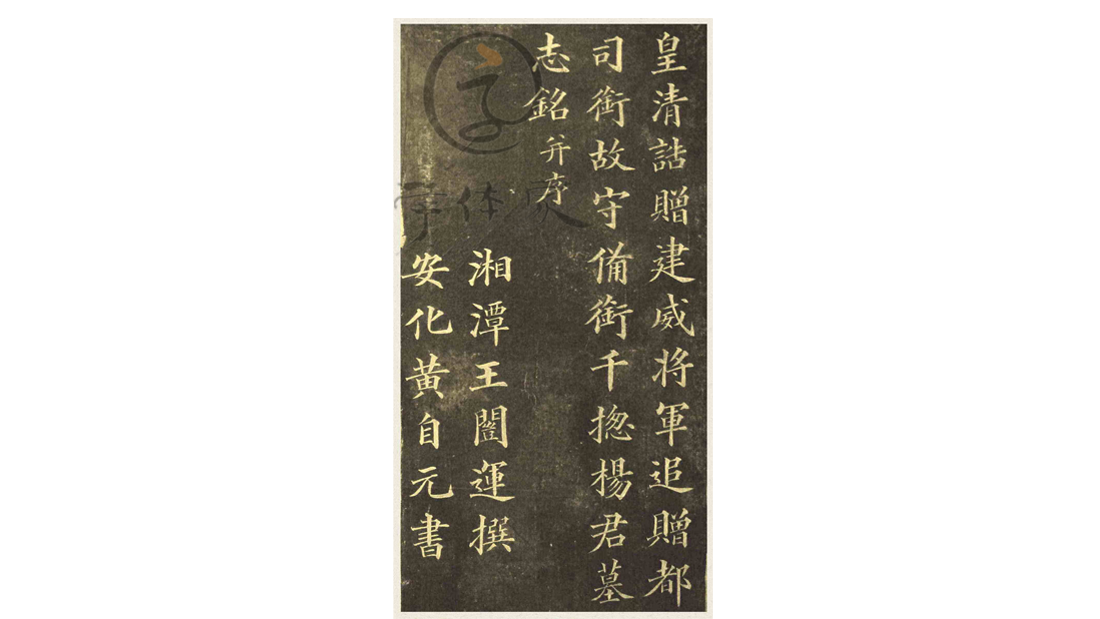 皇清誥贈建威將軍追贈都
司銜故守備銜千揔楊君墓
志銘并序
湘潭王闓運撰
安化黃自元書
字体家